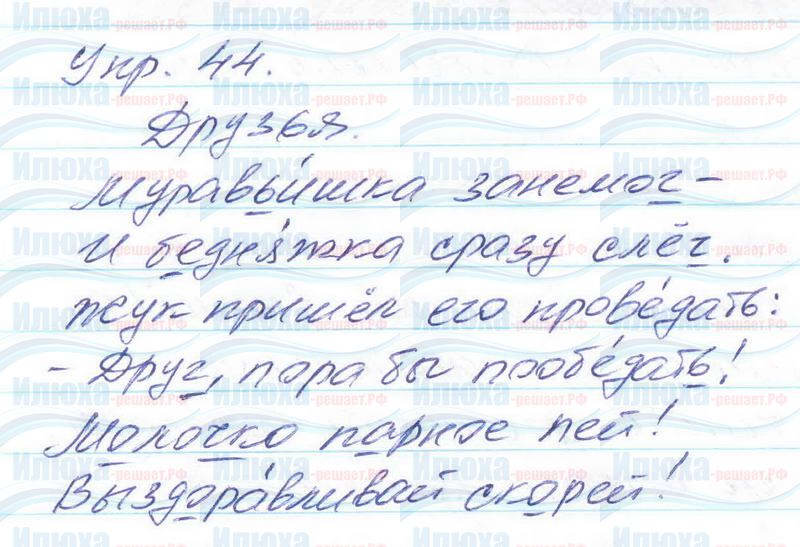 Упр. 44.
Друзья.
Муравьишка занемог -
И бедняжка сразу слёг.
Жук пришёл его прове́дать:
- Друг, пора бы пообе́дать!
Молочко парное пей!
Выздора́вливай скорей!